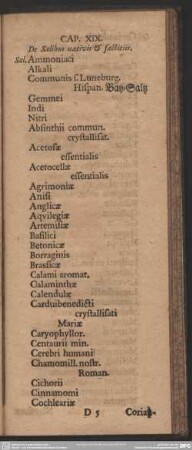 CAP. XIX.
De Salibus nativis & factitiis.
Sal. Ammoniaci
Alkali
Communis Luneburg.
Hispan. Bay-Saltz
Gemmei
Indi
Nitri
Absinthii commun.
crystallisat.
Acetosæ
essentialis
Acetocellæ
essentialis
Agrimoniæ
Anisi
Anglicæ
Aqvilegiæ
Artemisiæ
Basilici
Betonicæ
Borraginis
Brassicæ
Calami aromat.
Calaminthæ
Calendulæ
Carduibenedicti
crystallisati
Mariæ
Caryophyllor.
Centaurii min.
Cerebri humani
Chamomill. nostr.
Roman.
Cichorii
Cinnamomi
Cochleariæ
D 5